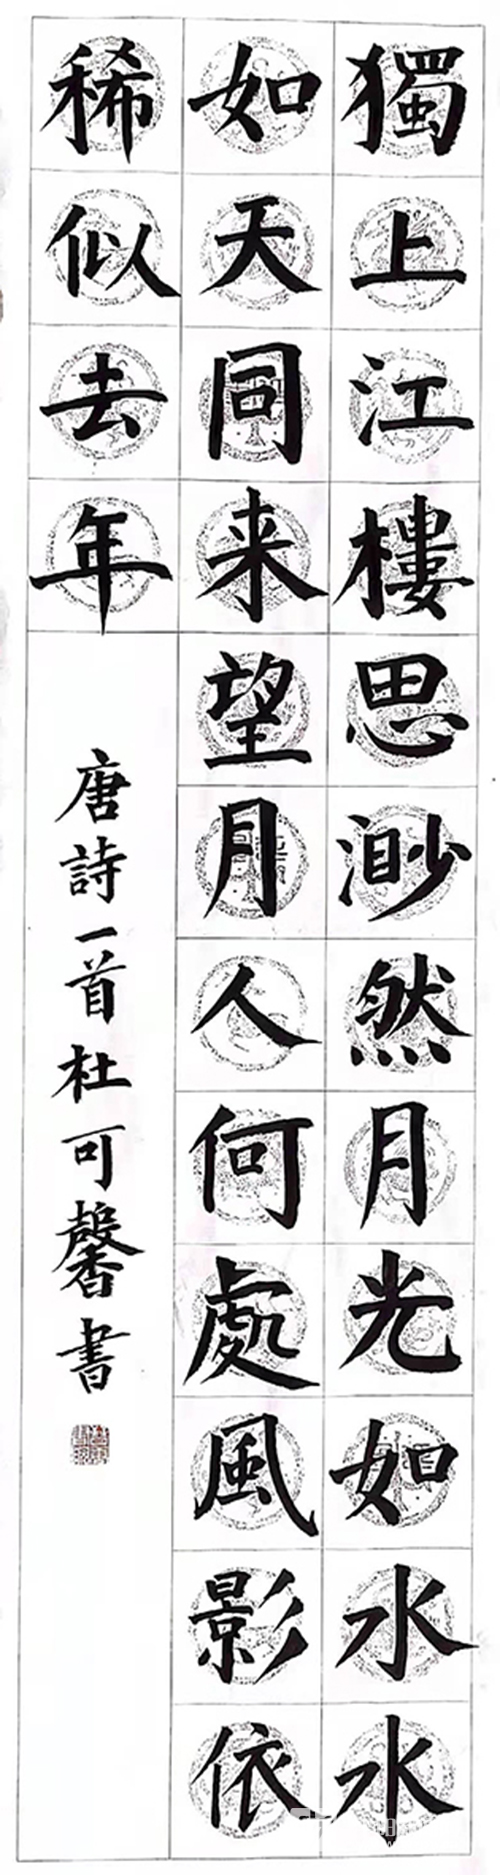 獨上江樓思渺然月光如水水
如天同来望月人何處風影依
稀似去年
唐詩一首杜可馨書